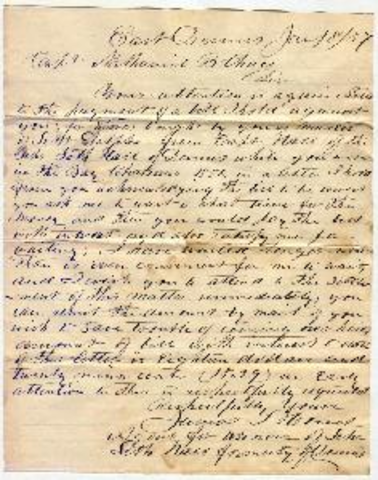 East Dennis, Jan 18/57
Capt Nathaniel B Chase
Sir
Your attention is again called
to the payment of a bill I hold against
you, for stores bought by you as master
of Sch from Capt Hall of the
Sch Seth Hall of Dennis while you were
in the Bay In a letter I have
from you acknowledging the bill to be correct
you ask me to wait a short time for the
money and then you would pay the bill
with interest and also satisfy me for
waiting; I have waited longer now
than is even convenient for me to wait
and I wish you to attend to the settle
ment of this matter immediately, you
can send the amount by mail if you
wish to save trouble of coming over here,
amount of bill with interest to date
of this letter is Eighteen dollars and
twenty nine cents ($18.29) an Early
attention to this is respectfully requested
Respectfully Yours
Howes
Agent for owners of Sch
Seth Hall formerly of Dennis